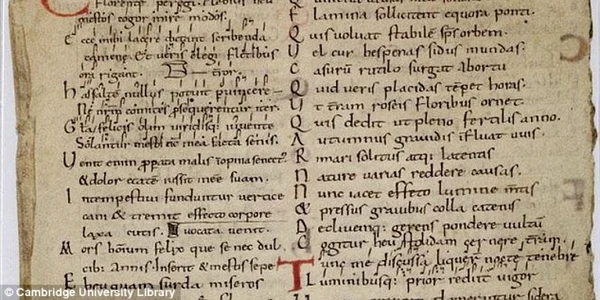 Florente peregi. Flebilis heu
mestos cogor inire modos.
Ecce mihi lacere dictant scribenda
camene. Et ueris elegi Fletibus
ora rigant. terror.
has saltē nullus potuit puincere
Ne nrm comites psequerentur iter.
Gła felicis olim uiridisq; iuuente
Solantur mesti nc mea fata senis.
Uenit enim ppata malis inopina senect'
& dolor etatē iussit inee suam.
Intempestiui funduntur uertice
cani & tremit effeto corpore
laxa cutis. uocata uenit.
Mors hōinum felix que se nec dul
cib; Annis Inserit & mestis sepe
Eheu quam surda miseros
Flamina sollicitent equora ponti.
Quis uoluat stabilē sps orbem.
Uel cur hesperas sidus in undas.
Casurū rutilo surgat Abortu
Quid ueris placidas tēpet horas.
Ut t̄ram roseis floribus ornet.
Quis dedit ut pleno fertilis anno.
Autumnus grauidis ifluat uuis.
Rimari solitus atq; latentis
Nature uarias reddere causas.
Nunc iacet effeto lumine m̄tis
& pressus grauibus colla catenis
Decliuemq; gerens pondere uultū
Cogitur heu stolidam cernere t̄ram
Tunc me discussa liquer nocte tenebre
Luminibusq; prior rediit uigor
© Cambridge University Library